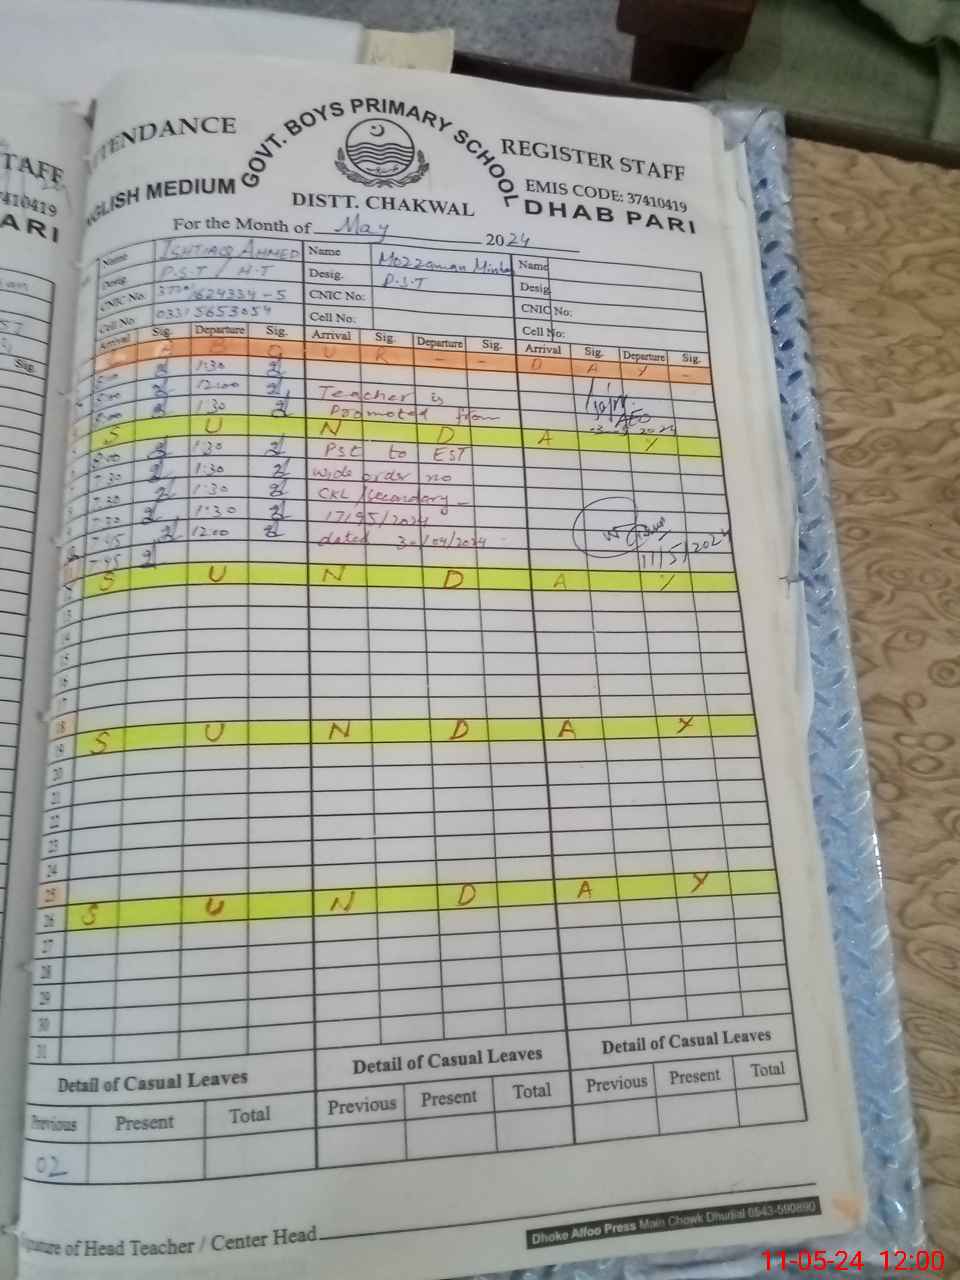 TAFF
7410419
ARI
Sig.
ATTENDANCE
GOVT. BOYS PRIMARY SCHOOL
REGISTER STAFF
ENGLISH MEDIUM
EMIS CODE: 37410419
DISTT. CHAKWAL
DHAB PARI
For the Month of May 2024
Name ISHTIAQ AHMED Name Name
Desig. P.S.T / H.T Desig. P.S.T Desig
CNIC No: CNIC No: CNIC No:
Cell No: 03315653054 Cell No: Cell No:
Arrival Sig. Departure Sig. Arrival Sig. Departure Sig. Arrival Sig. Departure Sig.
L A B O U R - - D A Y -
8:00 1:30
8:00 12:00 Teacher is
8:00 1:30 Promoted from
S U N D A Y
8:00 1:30 Pst to EST
7:30 1:30 wide order no
7:30 1:30 CKL /secondary -
7:30 1:30 17195/2024
7:45 12:00 dated 30/04/2024
7:45 11/5/2024
S U N D A Y
13
14
15
16
17
18
19 S U N D A Y
20
21
22
23
24
25
26 S U N D A Y
27
28
29
30
31
Detail of Casual Leaves Detail of Casual Leaves Detail of Casual Leaves
Previous Present Total Previous Present Total Previous Present Total
02
Signature of Head Teacher / Center Head
Dhoke Alfoo Press Main Chowk Dhudial 0543-590890
11-05-24 12:00